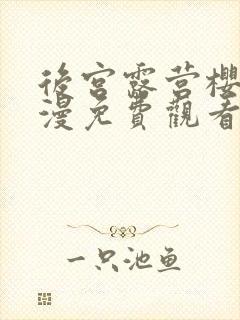 後宮露营櫻
漫免費觀看
一只池鱼